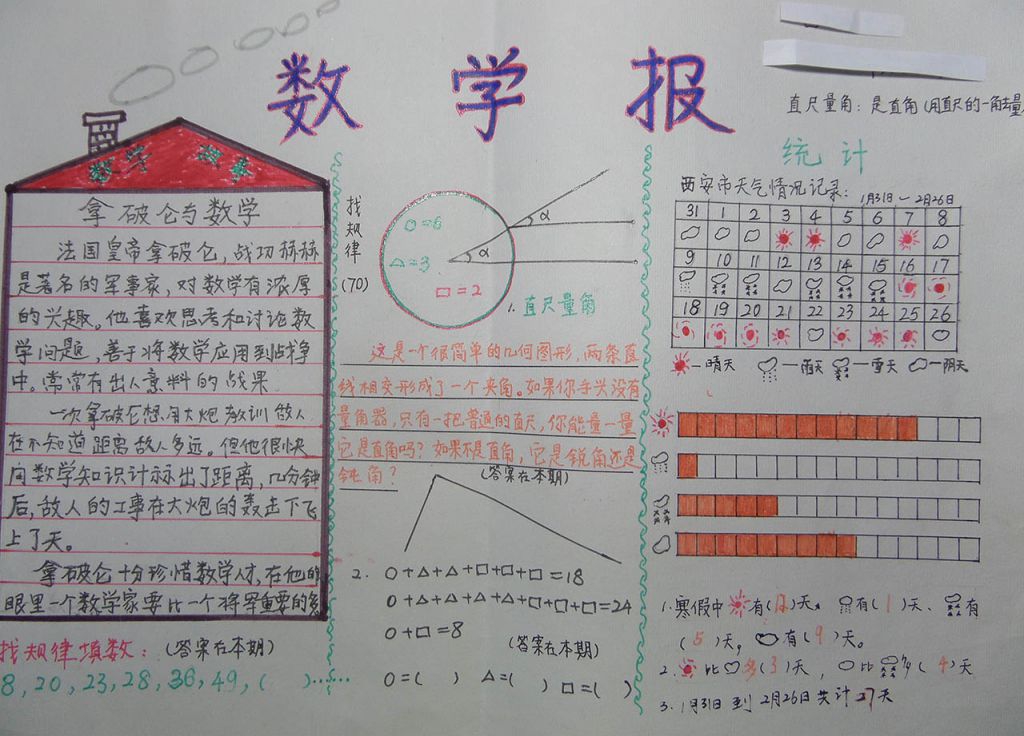 数 学 报
数学 故事
拿破仑与数学
法国皇帝拿破仑，战功称称
是著名的军事家，对数学有浓厚
的兴趣。他喜欢思考和讨论数
学问题，善于将数学应用到战争
中。常常有出人意料的战果
一次拿破仑想用大炮教训敌人
在不知道距离敌人多远。但他很快
向数学知识计标出了距离，几分钟
后，敌人的工事在大炮的轰击下飞
上了天。
拿破仑十分珍惜数学人才，在他的
眼里一个数学家要比一个将军重要的多
找规律填数：(答案在本期)
8,20,23,28,36,49,( )……
找规律
(70)
○=6
△=3
□=2
α
α
1.直尺量角
这是一个很简单的几何图形，两条直
线相交形成了一个夹角。如果你手头没有
量角器，只有一把普通的直尺，你能量一量
它是直角吗？如果不是直角，它是锐角还是
钝角？
(答案在本期)
2. ○+△+△+□+□+□=18
○+△+△+△+△+□+□+□=24
○+□=8
(答案在本期)
○=( ) △=( ) □=( )
直尺量角：是直角(用直尺的一角去量
统 计
西安市天气情况记录：
1月31日—2月26日
31 1 2 3 4 5 6 7 8
9 10 11 12 13 14 15 16 17
18 19 20 21 22 23 24 25 26
—晴天 —雨天 —雪天 —阴天
1.寒假中 有(12)天， 有(1)天、 有
(5)天， 有(9)天。
2. 比 多(3)天， 比 多(4)天
3.1月31日到2月26日共计27天